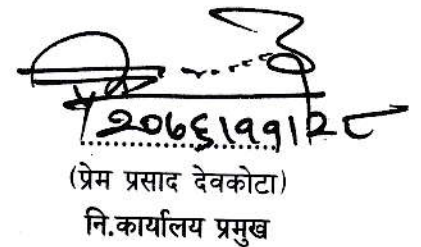 २०७६।११।२८
(प्रेम प्रसाद देवकोटा)
नि.कार्यालय प्रमुख